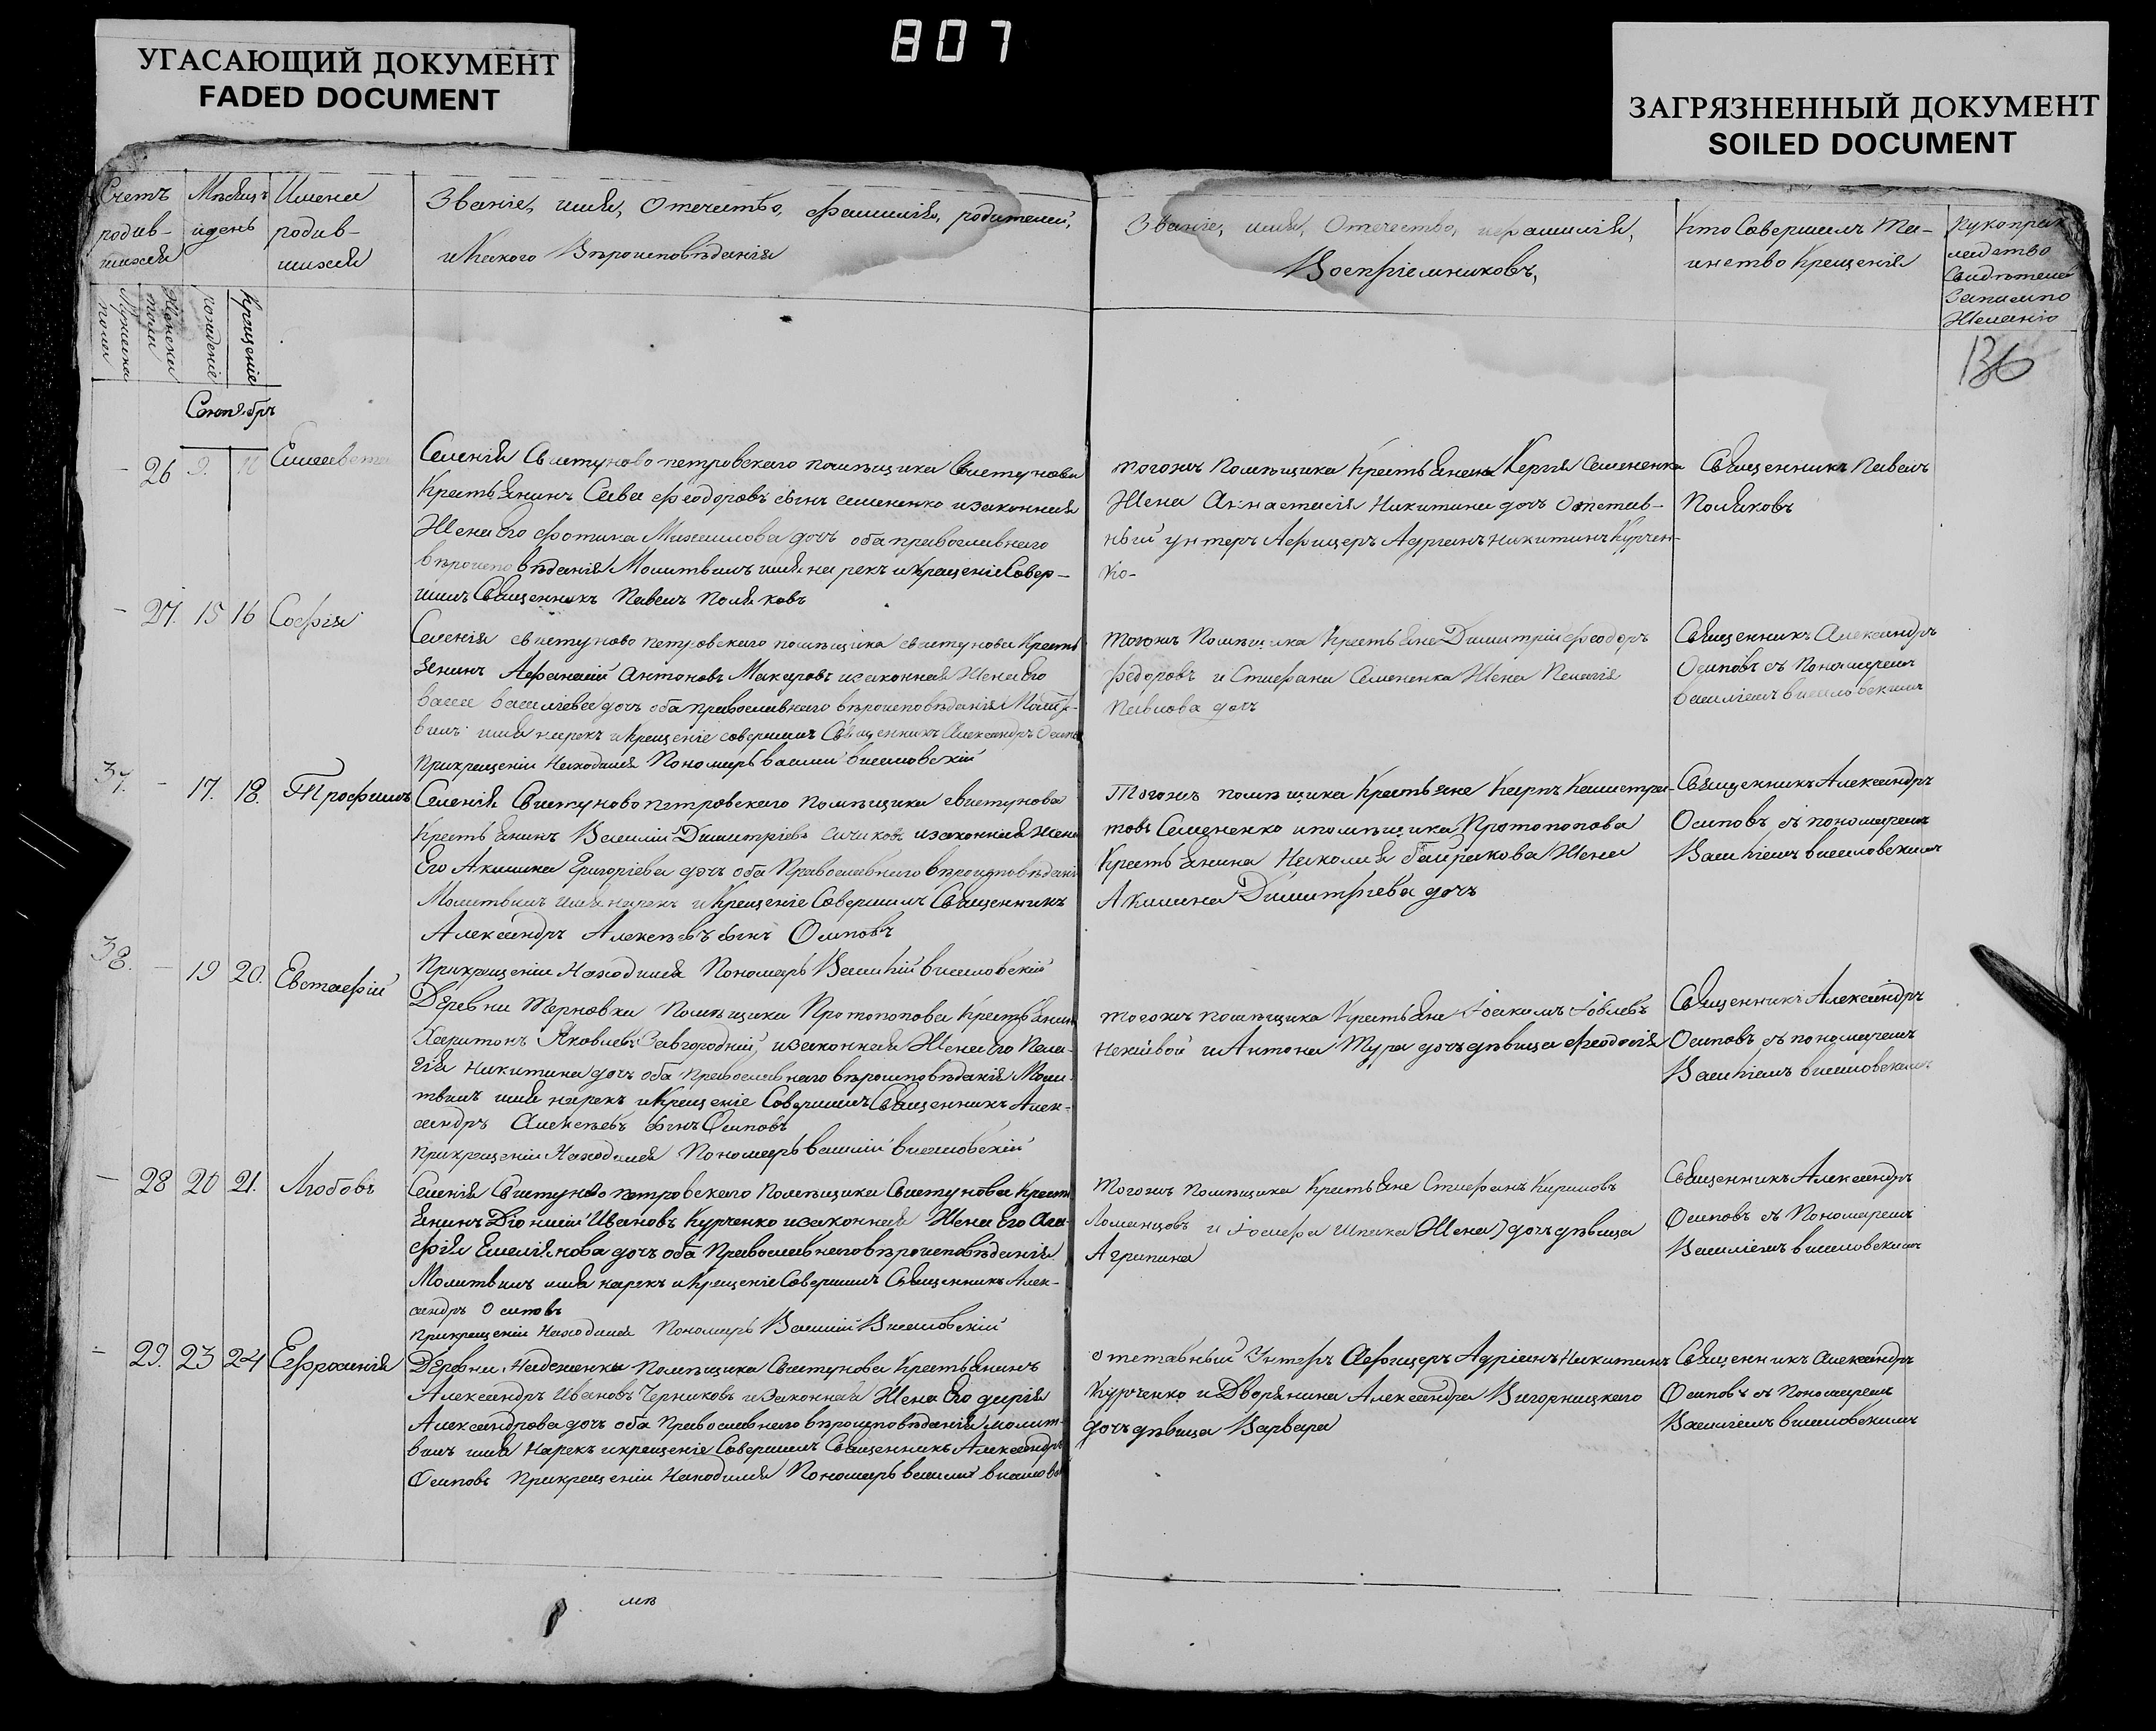 807
УГАСАЮЩИЙ ДОКУМЕНТ
FADED DOCUMENT
ЗАГРЯЗНЕННЫЙ ДОКУМЕНТ
SOILED DOCUMENT
Счетъ родив- шихся
Мѣсяцъ и день
Имена родив- шихся
Званіе, имя, Отечество, фамилія, родителей,
и Какого Вѣроисповѣданія
Званіе, имя, Отечество, и фамилія,
Воспріемниковъ,
Кто Совершилъ Та-
инство Крещенія
Рукоприк
ладство
Свидѣтелей
Записи по
Желанію
Мужеска пола
Женска пола
рожденіе
Крещеніе
136
Сентябрь
- 26 9. Елисавета
Селенія Свистуново петровскаго помѣщика Свистунова
Крестьянинъ Сава Феодоровъ сынъ Семененко и законная
Жена Его Фотина Михаилова дочь оба православнаго
вѣроисповѣданія Молитвилъ имя нарекъ и Крещеніе Совер-
шилъ Священникъ Павелъ Поляковъ
тогожъ Помѣщика Крестьянина Семененка
Жена Анастасія Никитина дочь Отстав-
ный унтеръ Афицеръ Адріанъ Никитинъ Курчен-
ко-
Священникъ Павелъ
Поляковъ
- 27. 15 16 Софія
Селенія свистуново петровскаго помѣщика свистунова Кресть
янинъ Афанасій Антоновъ Макаровъ и законная Жена Его
Васса Василіева дочь оба Православнаго вѣроисповѣданія Молит-
вилъ имя нарекъ и Крещеніе совершилъ Священникъ Александръ Осипо
При крещеніи Находился Пономарь василій висловскій
тогожъ Помѣщика Крестьяне Димитрій Феодоръ
федоровъ и Стефана Семененка Жена Пелагія
Павлова дочь
Священникъ Александръ
Осиповъ съ Пономаремъ
василіемъ висловскимъ
37. - 17. 18. Трофимъ
Селенія Свистуново петровскаго Помѣщика свистунова
Крестьянинъ Василій Димитріевъ и законная Жена
Его Акилина Григоріева дочь оба Православнаго вѣроисповѣдані
Молитвилъ имя нарекъ и Крещеніе Совершилъ Священникъ
Александръ Алексѣевъ сынъ Осиповъ
При крещеніи Находился Пономарь Василій висловскій
Тогожъ помѣщика Крестьяне Карпъ
Семененко и помѣщика Протопопова
Крестьянина Николая Байракова Жена
Акилина Димитріева дочь
Священникъ Александръ
Осиповъ съ пономаремъ
Василіемъ висловскимъ
38. - 19 20. Евстафій
Деревни Терновки Помѣщика Протопопова Крестьянин
Харитонъ Яковлевъ Завгородній, и законная Жена Его Пела-
гія Никитина дочь оба Православнаго вѣроисповѣданія Моли-
твилъ имя нарекъ и Крещеніе Совершилъ Священникъ Алек-
сандръ Алексѣевъ сынъ Осиповъ
При крещеніи Находился Пономарь василій висловскій
тогожъ помѣщика Крестьяне Іоакимъ Іовлевъ
и Антона Тура дочь дѣвица Феодосія
Священникъ Александръ
Осиповъ съ пономаремъ
Василіемъ висловскимъ
- 28 20 21. Любовь
Селенія Свистуново петровскаго Помѣщика Свистунова Кресть
янинъ Діонисій Ивановъ Курченко и законная Жена Его Ага-
фія Емеліянова дочь оба Православнаго вѣроисповѣданія
Молитвилъ имя нарекъ и Крещеніе Совершилъ Священникъ Алек-
сандръ Осиповъ
При крещеніи Находился Пономарь Василій Висловскій
тогожъ Помѣщика Крестьяне Стефанъ Кириловъ
Ломанцовъ и Іосифа Шпака (Жена) дочь дѣвица
Агрипина
Священникъ Александръ
Осиповъ съ Пономаремъ
Василіемъ висловскимъ
- 29. 23 24 Ефросинія
Деревни Надеженки Помѣщика Свистунова Крестьянинъ
Александръ Ивановъ Черниковъ и Законная Жена Его дарія
Александрова дочь оба Православнаго вѣроисповѣданія молит-
вилъ имя Нарекъ и крещеніе Совершилъ Священникъ Александръ
Осиповъ При крещеніи Находился Пономарь василій
отставный Унтеръ Афицеръ Адріанъ Никитинъ
Курченко и Дворянина Александра Вигорницкаго
дочь дѣвица Варвара
Священникъ Александръ
Осиповъ съ Пономаремъ
Василіемъ висловскимъ